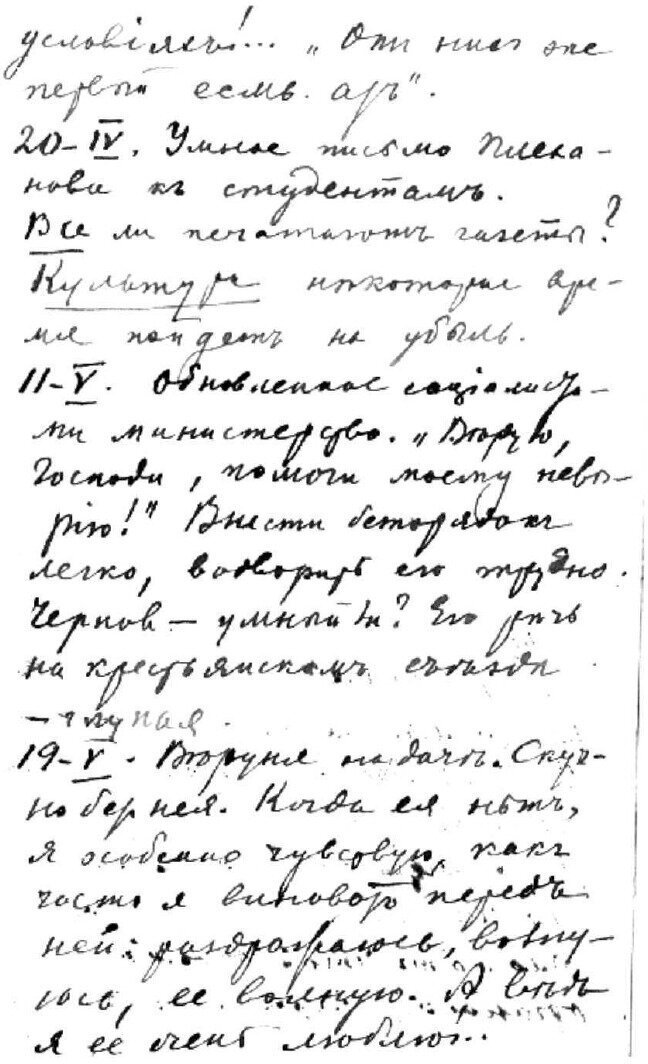 условіяхъ!... „Отъ нихъ же
первый есмь азъ".
20-IV. Умное письмо Плеха-
нова къ студентамъ.
Все ли печатаютъ газеты?
Культура некоторое вре-
мя пойдетъ на убыль.
11-V. Обновленное соціалиста-
ми министерство. „Вѣрую,
Господи, помоги моему невѣ-
рію!" Внести безпорядокъ
легко, водворить его трудно.
Чернов — умный ли? Его рѣчь
на крестьянскомъ съѣзде
— глупая.
19-V. Вѣруня на дачѣ. Скуч-
но без нея. Когда ея нѣтъ,
я особенно чувсвую, какъ
часто я виноват передъ
ней: раздражаюсь, волну-
юсь, ее волную. А вѣдь
я ее очень люблю...